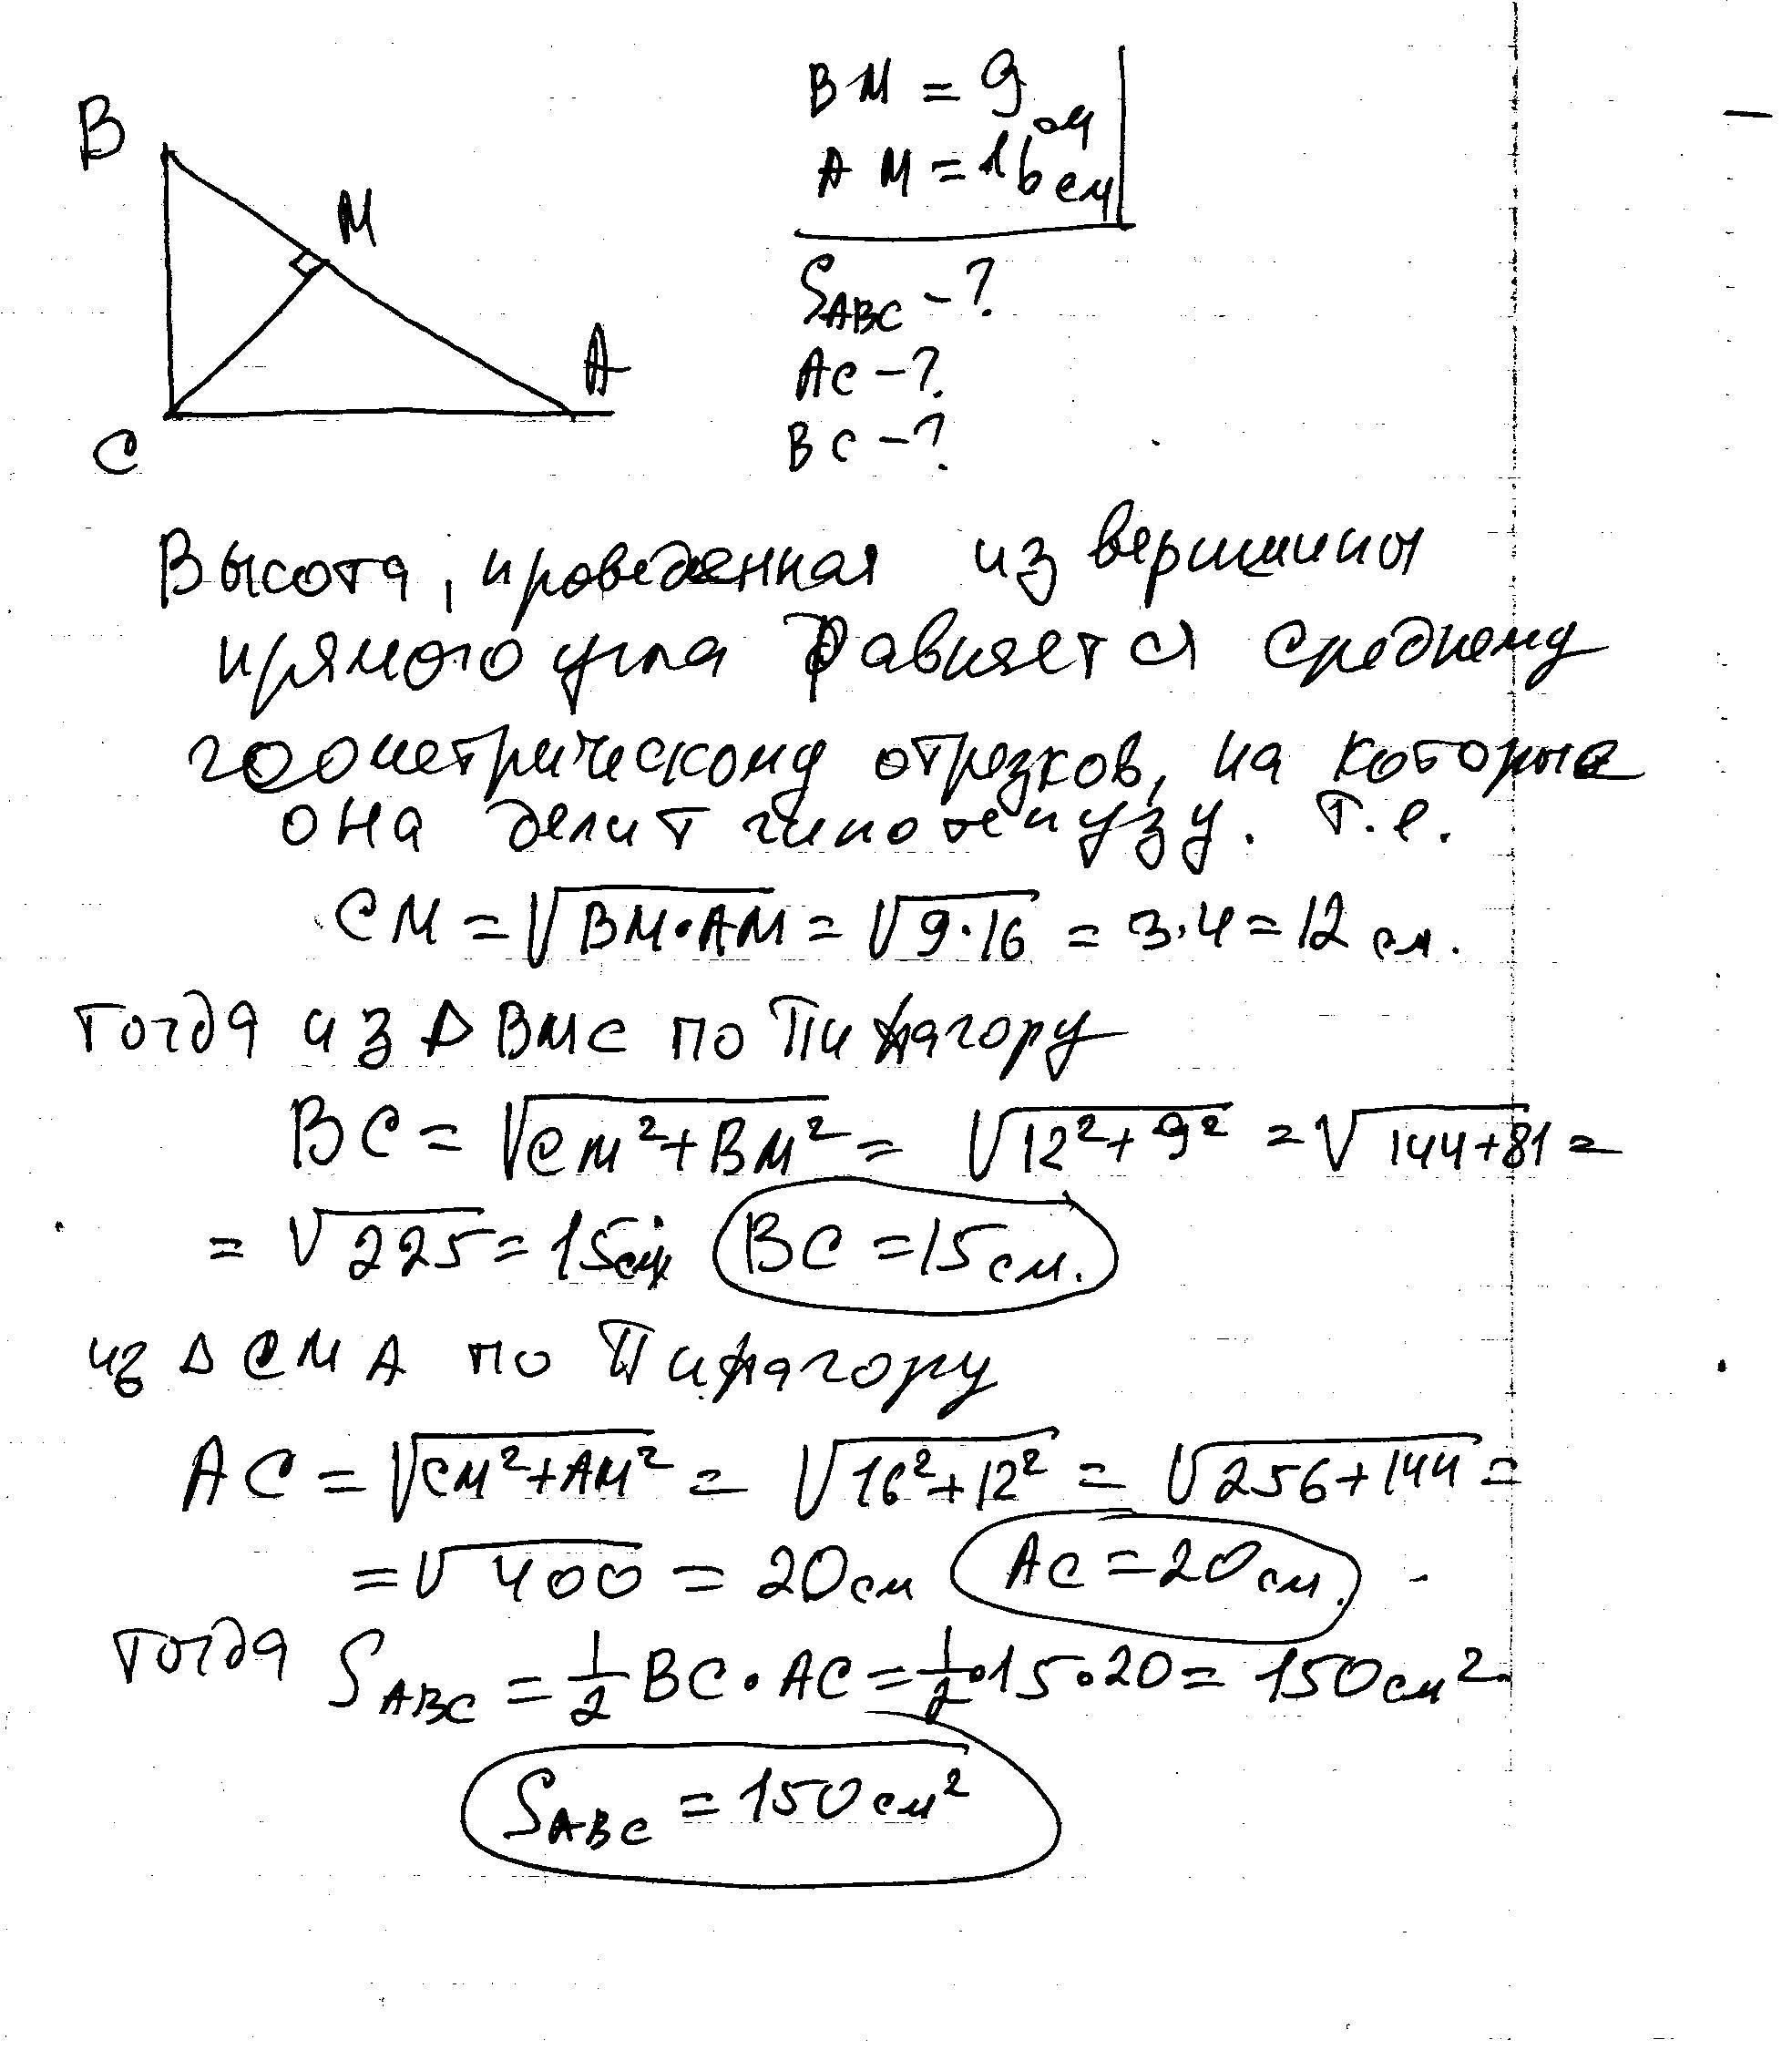 B
M
A
C
BM = 9 см
AM = 16 см
S_ABC - ?
AC - ?
BC - ?
Высота, проведенная из вершины
прямого угла равняется среднему
геометрическому отрезков, на которые
она делит гипотенузу. т.е.
CM = √BM·AM = √9·16 = 3·4 = 12 см.
Тогда из Δ BMC по Пифагору
BC = √CM²+BM² = √12²+9² = √144+81 =
= √225 = 15см BC = 15 см.
из Δ CMA по Пифагору
AC = √CM²+AM² = √16²+12² = √256+144 =
= √400 = 20 см AC = 20 см.
тогда S_ABC = 1/2 BC·AC = 1/2·15·20 = 150 см².
S_ABC = 150 см²